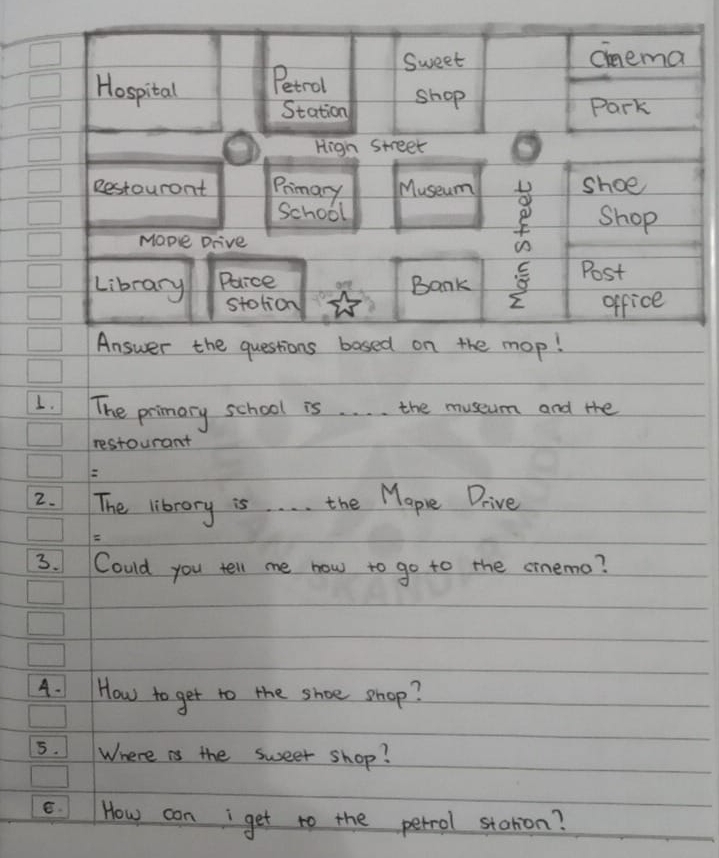 Hospital
Petrol
Station
Sweet
Shop
Cinema
Park
High Street
Restourant
Primary
School
Museum
Main Street
Shoe
Shop
Maple Drive
Library
Police
station
Bank
Post
office
Answer the questions based on the map!
1. The primary school is .... the museum and the
restourant
=
2. The library is .... the Maple Drive
=
3. Could you tell me how to go to the cinema?
4. How to get to the shoe shop?
5. Where is the sweet shop?
6. How can i get to the petrol station?